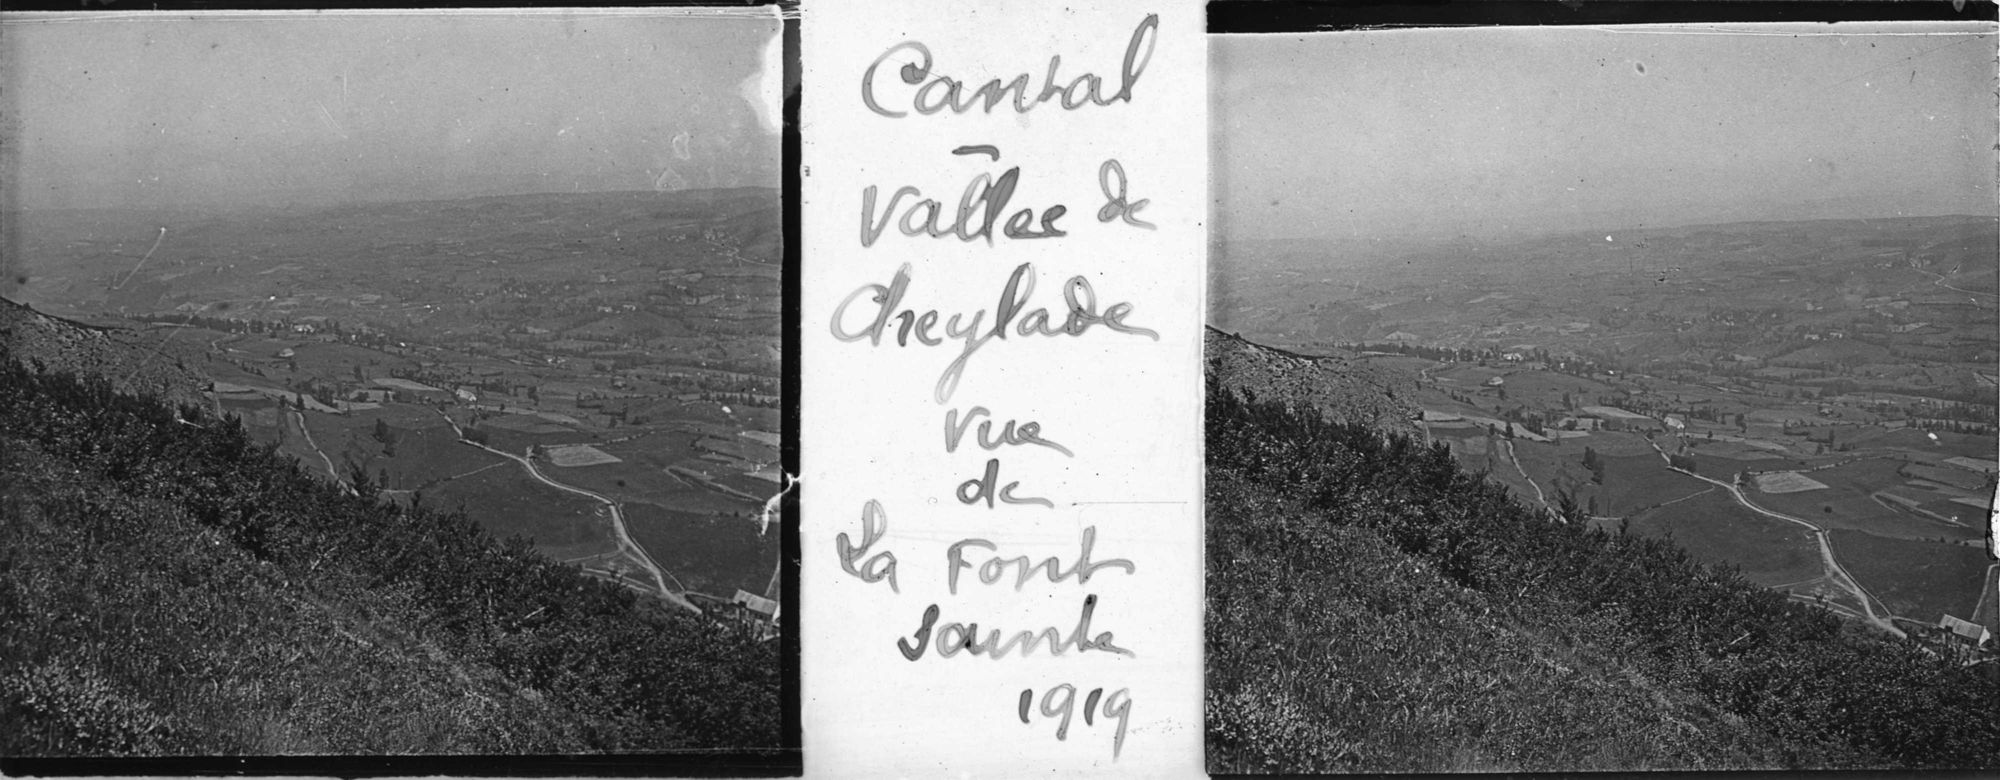 Cantal
-
Vallee de
Cheylade
Vue
de
La Font
Sainte
1919